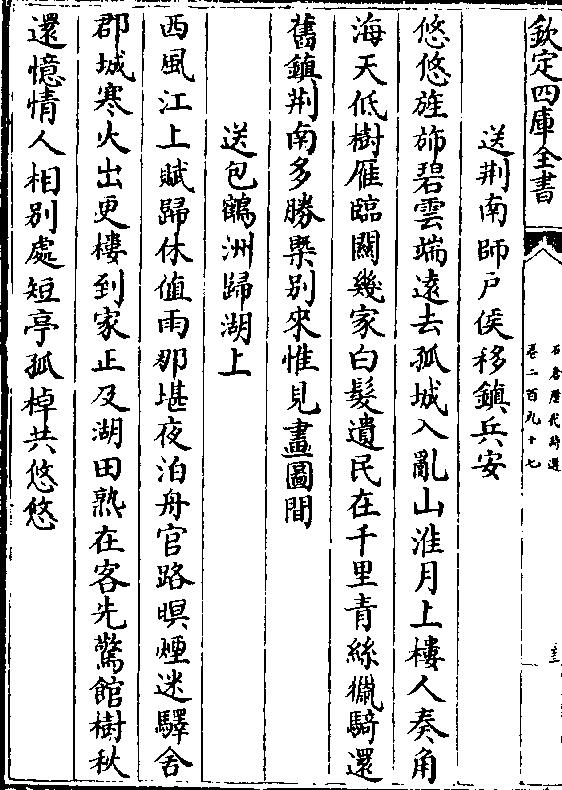 欽定四庫全書
石倉歷代詩選
卷二百九十七
送荆南師戸侯移鎮兵安
悠悠旌斾碧雲端遠去孤城入亂山淮月上樓人奏角
海天低樹雁臨關幾家白髮遺民在千里青絲獵騎還
舊鎮荆南多勝槩别來惟見畫圖間
送包鶴洲歸湖上
西風江上賦歸休值雨那堪夜泊舟官路暝煙迷驛舍
郡城寒火出更樓到家正及湖田熟在客先驚館樹秋
還憶情人相别處短亭孤棹共悠悠